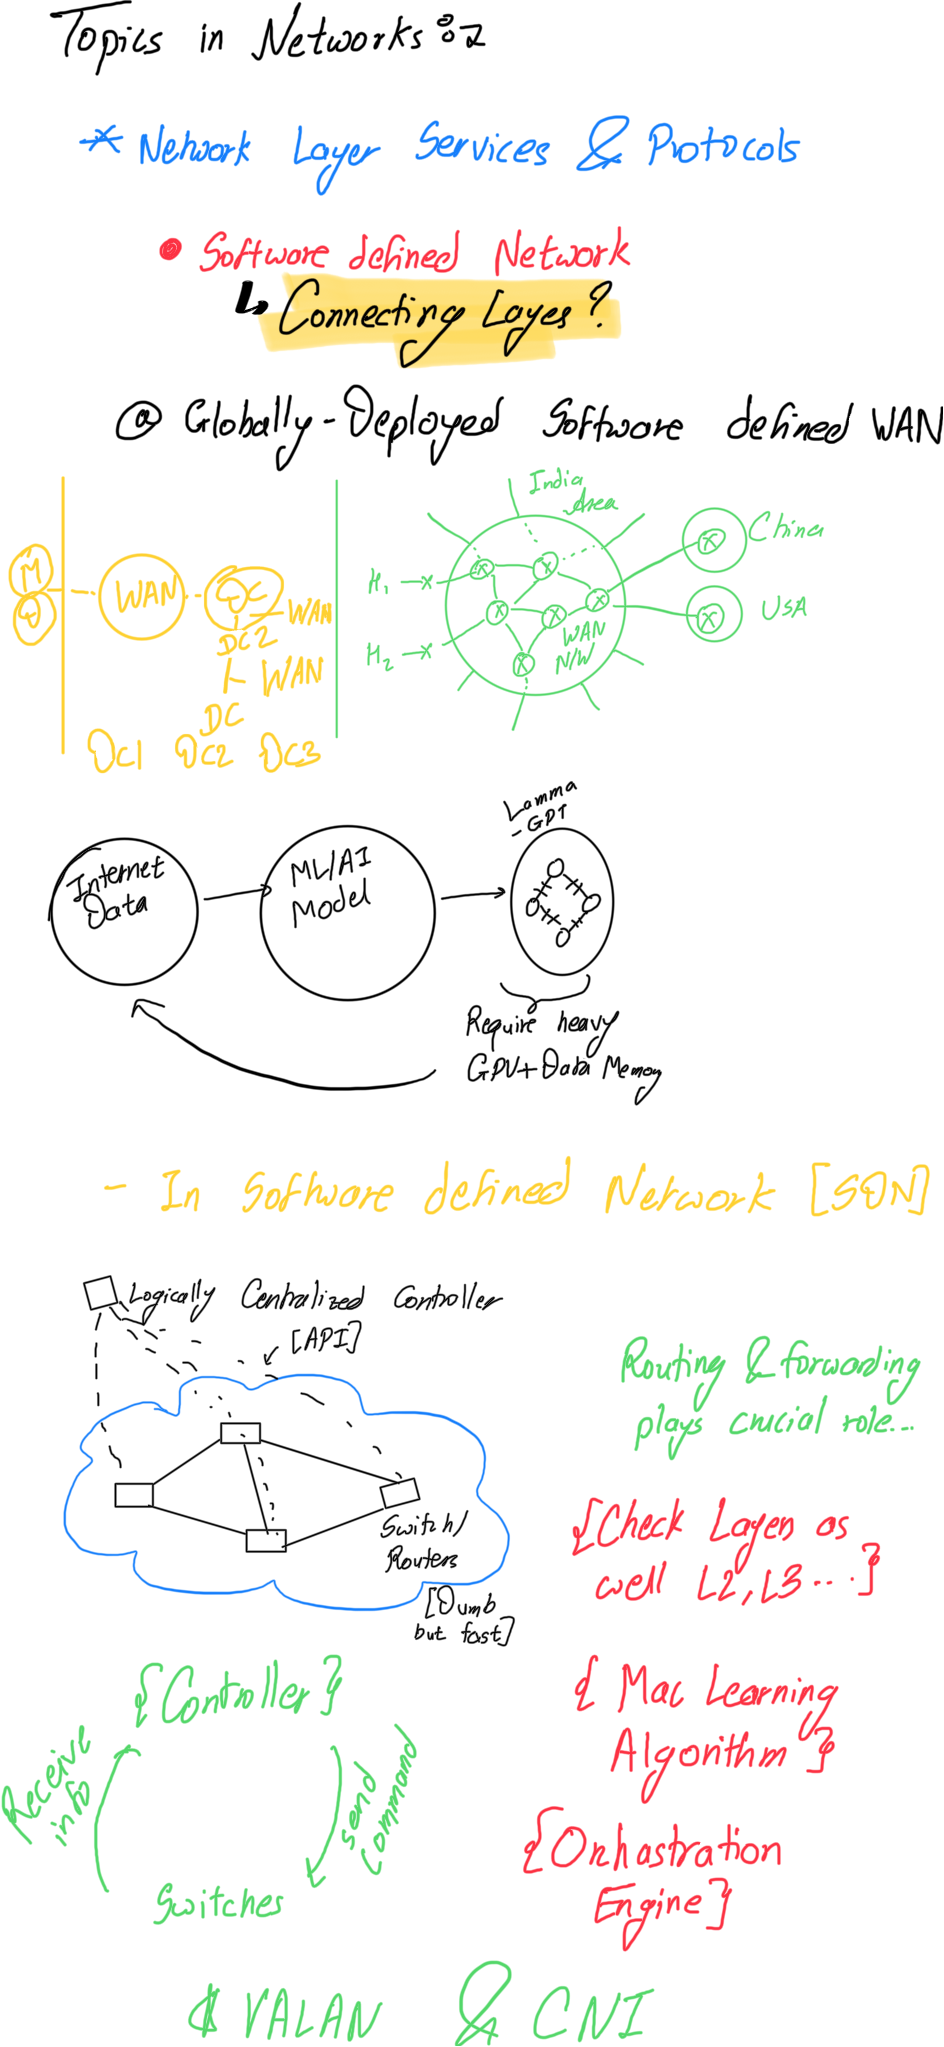 Topics in Networks :-
* Network Layer Services & Protocols
• Software defined Network
↳ Connecting Layes?
@ Globally-Deployed Software defined WAN
M
D
WAN
DC
WAN
DC2
WAN
DC
DC1 DC2 DC3
India
Area
H1
H2
WAN
N/W
China
USA
Internet
Data
ML/AI
Model
Lamma
- GPT
Require heavy
GPU + Data Memory
- In Software defined Network [SDN]
Logically Centralized Controller
[API]
Switch/
Routers
[Dumb
but fast]
Routing & forwarding
plays crucial role...
{Check Layers as
well L2, L3 ...}
{Controller}
Receive
info
send
command
Switches
{ Mac Learning
Algorithm }
{Orhastration
Engine}
$ VALAN & CNI